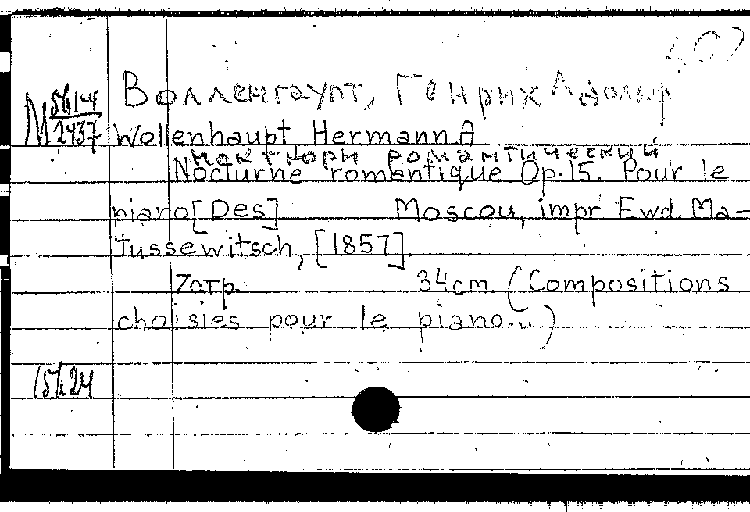 Волленгаупт, Генрих Адольф
Wollenhaupt Hermann A
ноктюрн романтический
Nocturne romantique Op.15. Pour le
piano [Des] Moscou, impr Ewd Ma-
tussewitsch, [1857].
7стр. 34cm. (Compositions
choisies pour le piano...)